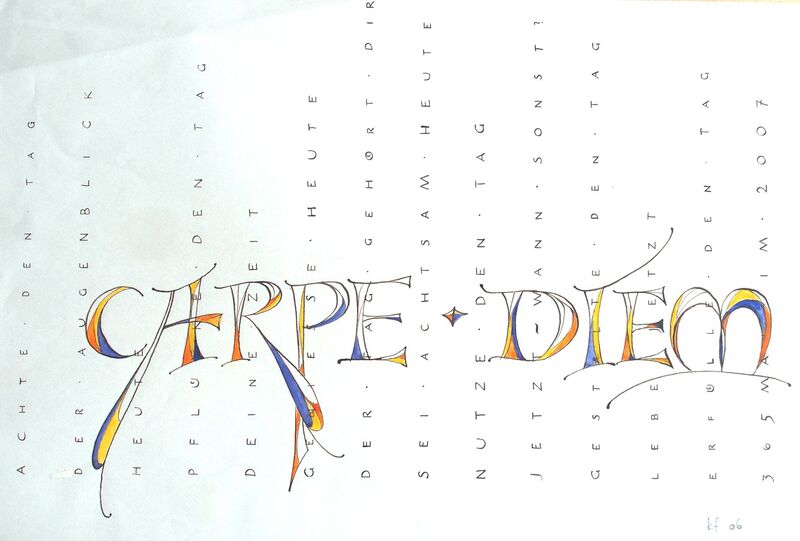 CARPE DIEM
ACHTE · DEN · TAG
DER · AUGENBLICK
HEUTE
PFLÜCKE · DEN · TAG
DEINE · ZEIT
HEUTE
DER · TAG · GEHÖRT · DIR
SEI · ACHTSAM · HEUTE
NUTZE · DEN · TAG
JETZT ~ WANN · SONST?
GESTALTE · DEN · TAG
LEBE · JETZT
ERFÜLLE · DEN · TAG
365MAL · IM · 2007
kf 06